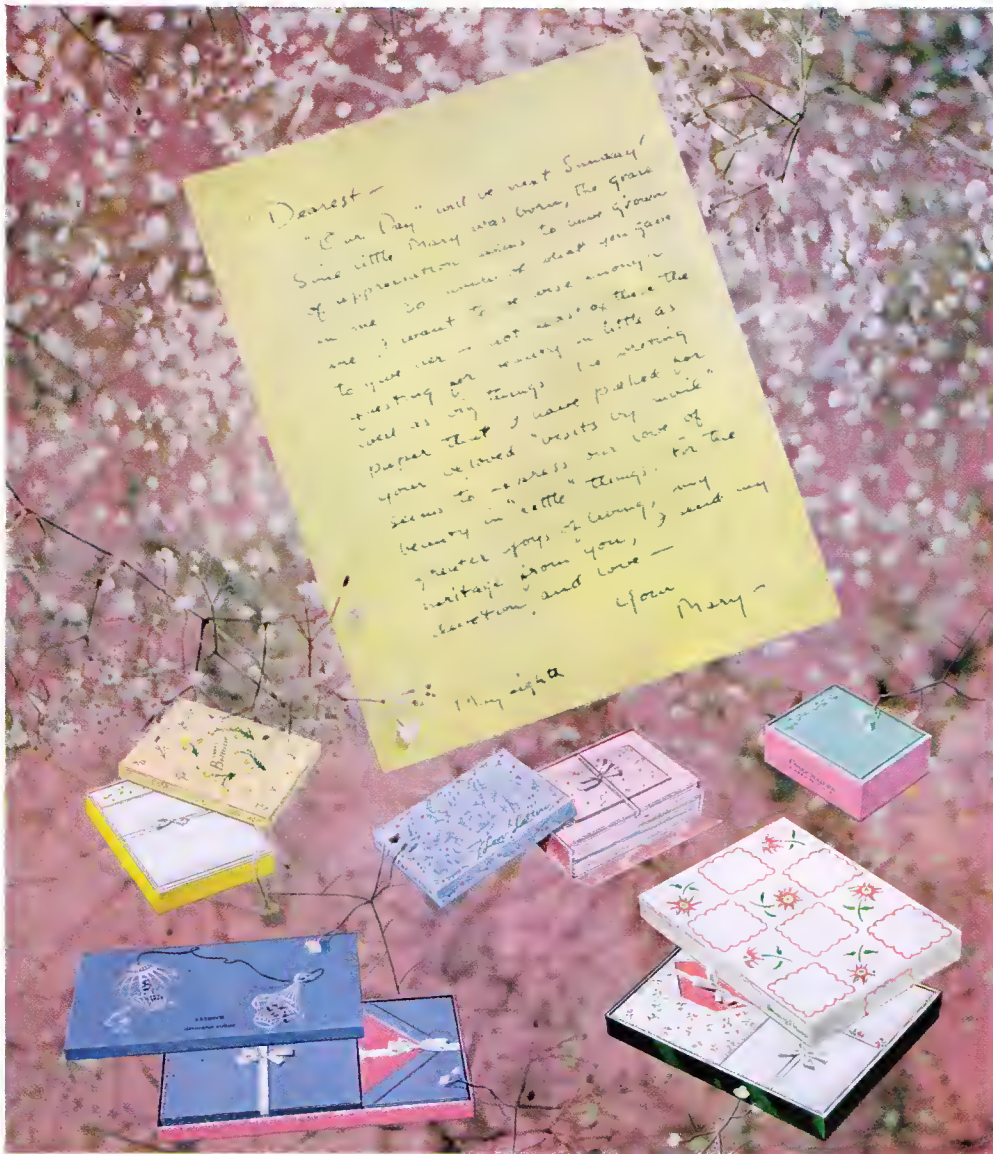 Dearest —
"Our Day" will be next Sunday!
Since little Mary was born, the grace
of appreciation seems to have grown
in me. So much of what you gave
me I want to be wise enough
to give her — not least of these the
questing for beauty in little as
well as big things. The writing
paper that I have picked for
your beloved "visits by mail"
seems to express our love of
beauty in "little" things. For the
greater joys of living, my
heritage from you, I send my
devotion, and love —
Your
Mary —
May eighth